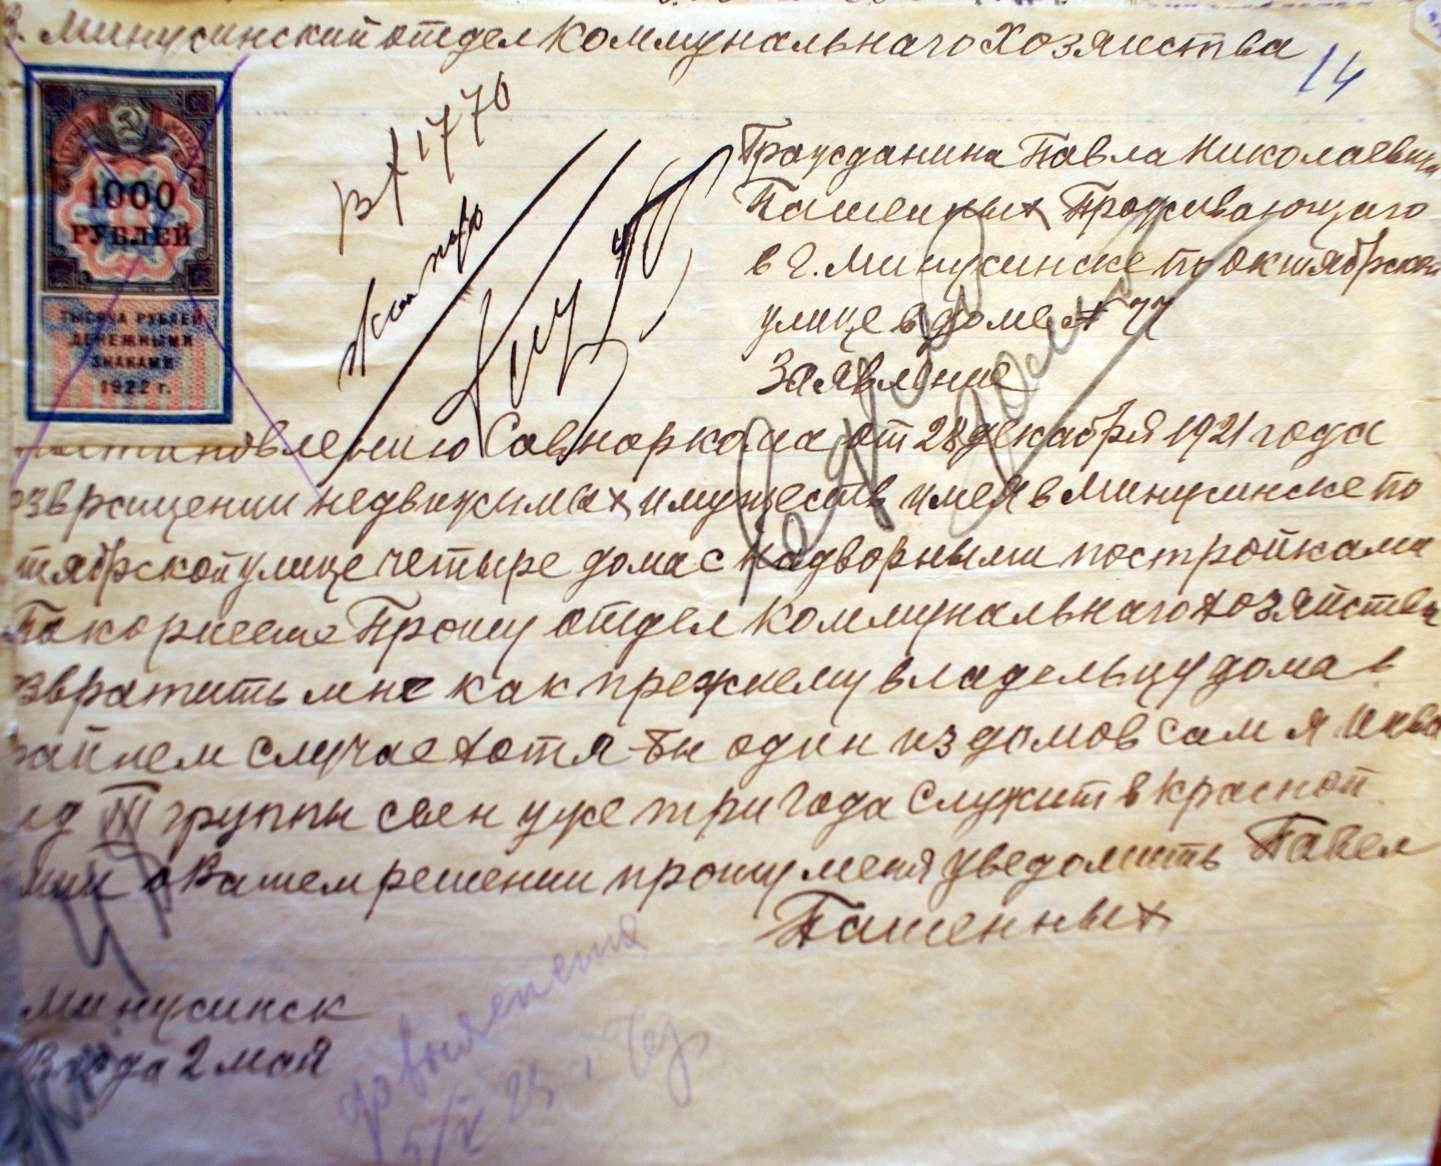 В. Минусинский отдел Коммунальнаго Хозяйства
14
1000
РУБЛЕЙ
ТЫСЯЧА РУБЛЕЙ
ДЕНЕЖНЫМИ
ЗНАКАМИ
1922 г.
Вх 1770
Гражданина Павла Николаевич
Пашенных Проживающаго
в г. Минусинске по октябрской
улице в доме № 77
Заявление
становлению Совнаркома от 28 декабря 1921 года
озвращении недвижимых имуществ имея в Минусинске по
тябрской улице четыре дома с надворными постройками
Покорнееше Прошу отдел коммунальнаго хозяйства
озвратить мне как прежнему владельцу дома в
райнем случае хотя-бы один из домов сам я инва
ид III группы сын уже три года служит в красной
мии о вашем решении прошу меня уведомить Павел
Пашенных
Минусинск
3 года 2 май
5/X 23